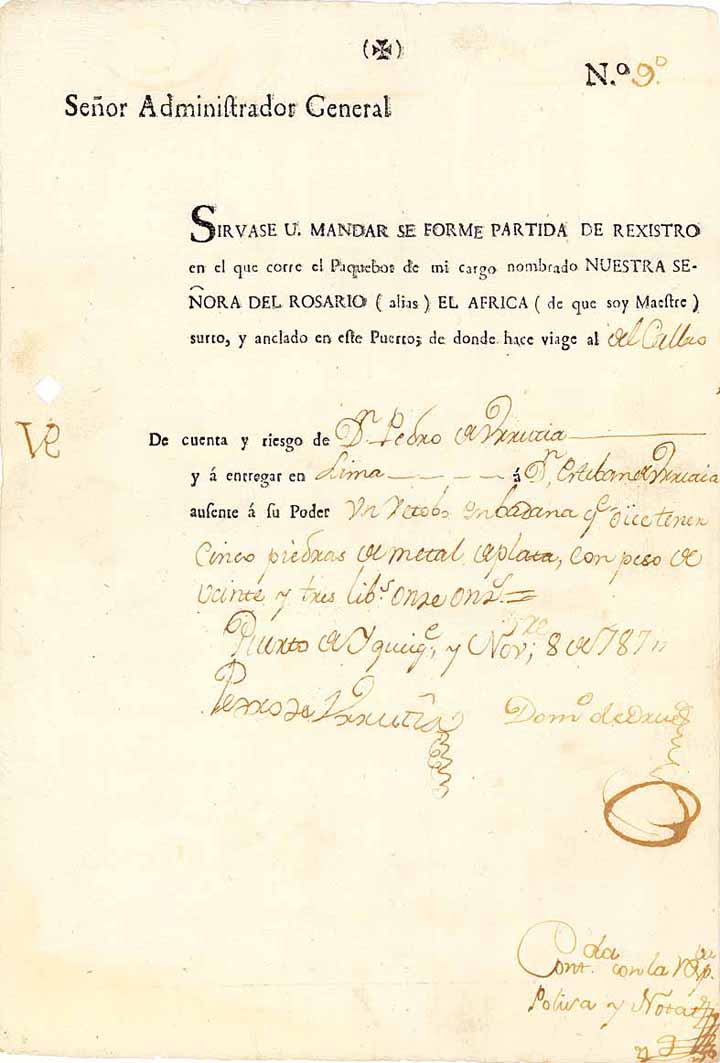 (✠)
N.º 9.º
Señor Adminiſtrador General
SIRVASE U. MANDAR SE FORME PARTIDA DE REXISTRO
en el que corre el Paquebos de mi cargo nombrado NUESTRA SE-
ÑORA DEL ROSARIO ( alias ) EL AFRICA ( de que soy Maeſtre )
surto, y anclado en eſte Puerto; de donde hace viage al del Callao
VR
De cuenta y riesgo de Dn. Pedro de Urrutia
y á entregar en Lima - - - - á Dn. Esteban de Urrutia
auſente á su Poder Un Retobo en badana qe. dice tener
Cinco piedras de metal de plata, con peso de
veinte y tres libs. onse onzs. =
Puerto de Yquiqe. y Novre. 8 de 787
Pedro de Urrutia
Domo. de
Contda. con la
Polisa y Nota